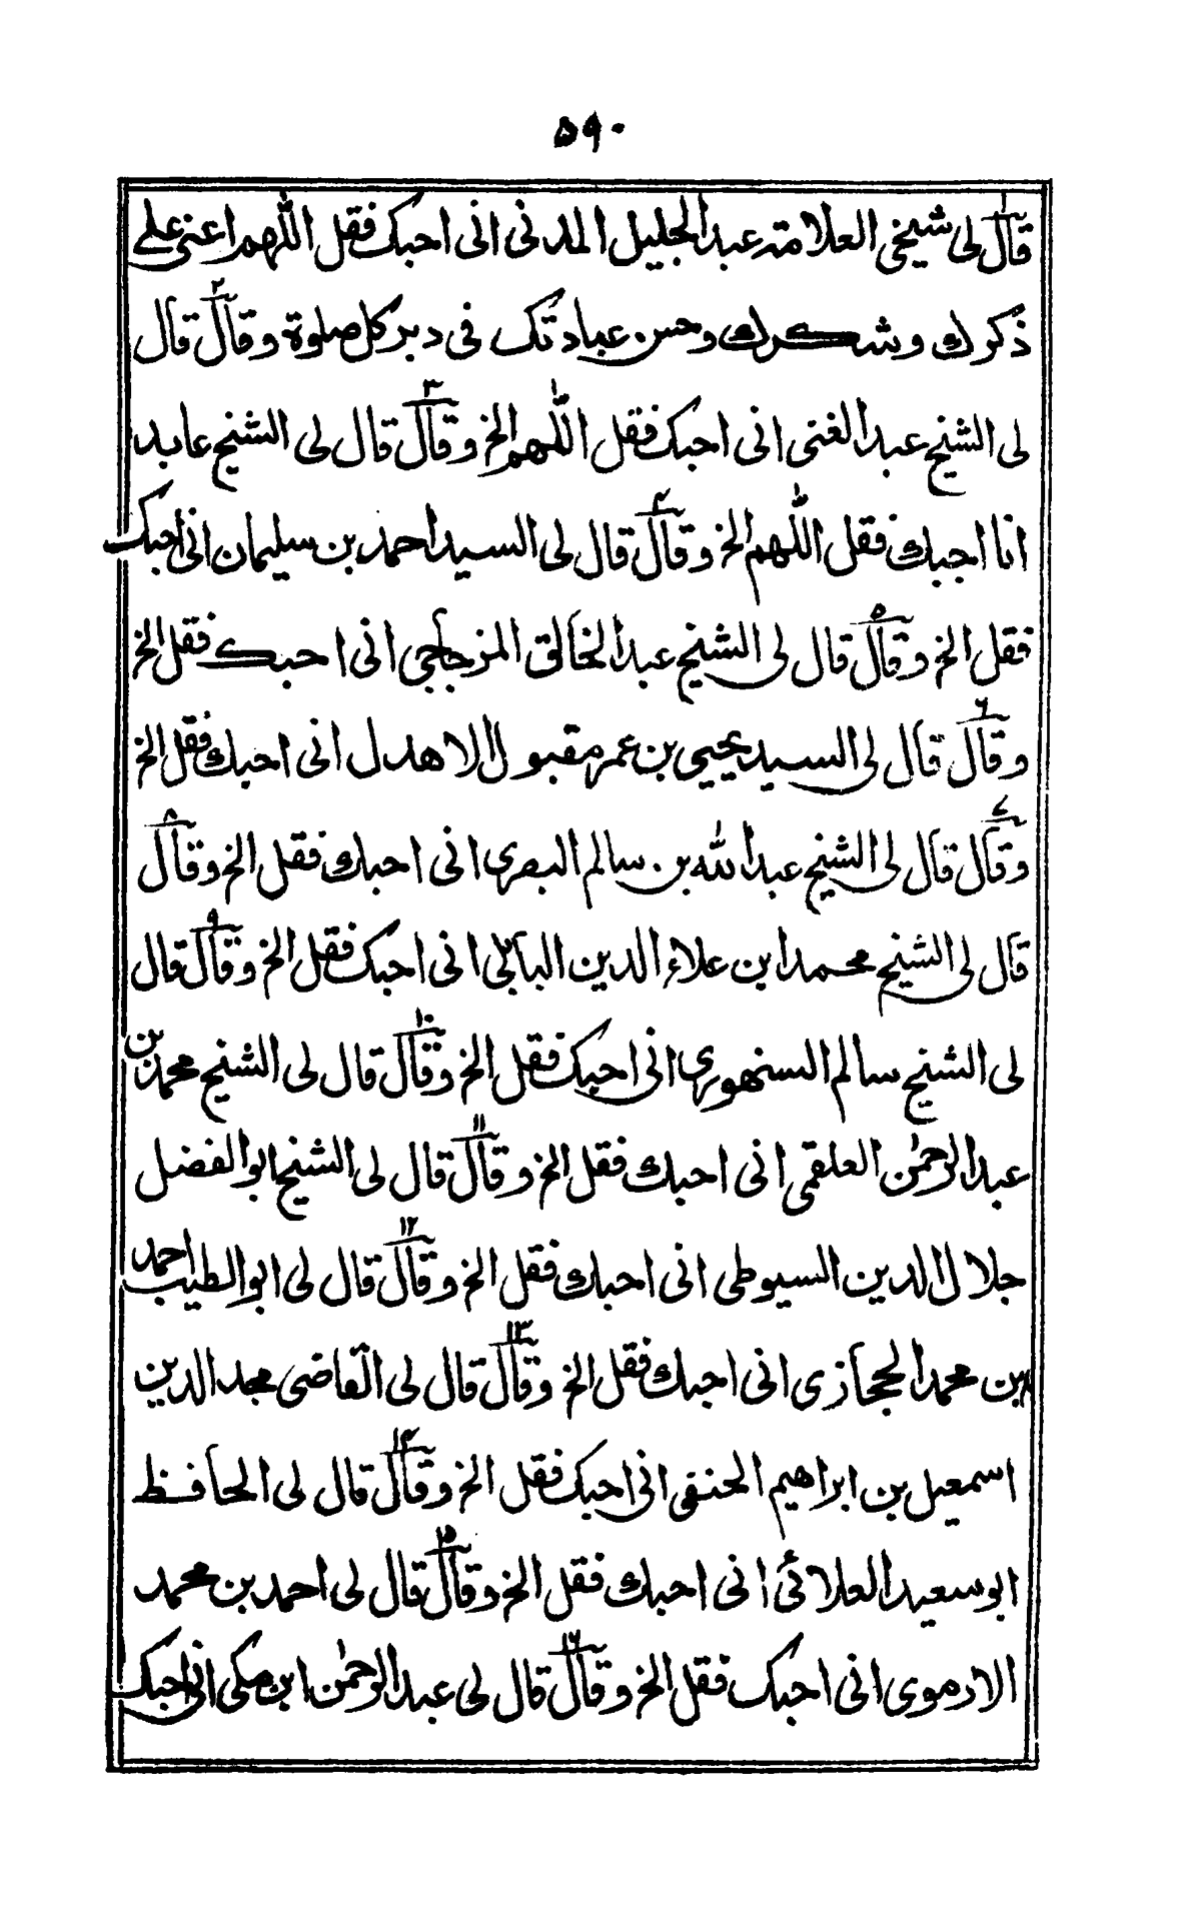 ۵۹۰
قال لی شیخی العلامة عبد الجلیل المدنی انی احبک فقل اللّٰهم اعنی علی
ذکرك وشکرك وحسن عبادتک فی دبر کل صلوة وقال۲ قال
لی الشیخ عبد الغنی انی احبک فقل اللّٰهم الخ وقال۳ قال لی الشیخ عابد
انا احبك فقل اللّٰهم الخ وقال۴ قال لی السید احمد بن سلیمان انی احبک
فقل الخ وقال۵ قال لی الشیخ عبد الخالق المزجاجی انی احبك فقل الخ
وقال۶ قال لی السید یحیی بن عمر مقبول الاهدل انی احبك فقل الخ
وقال۷ قال لی الشیخ عبد الله بن سالم البصری انی احبك فقل الخ وقال۸
قال لی الشیخ محمد ابن علاء الدین البابلی انی احبک فقل الخ وقال۹ قال
لی الشیخ سالم السنهوری انی احبک فقل الخ وقال۱۰ قال لی الشیخ محمد بن
عبد الرحمٰن العلقمی انی احبك فقل الخ وقال۱۱ قال لی الشیخ ابو الفضل
جلال الدین السیوطی انی احبك فقل الخ وقال۱۲ قال لی ابو الطیب احمد
بن محمد الحجازی انی احبك فقل الخ وقال۱۳ قال لی القاضی مجد الدین
اسمعیل بن ابراهیم الحنفی انی احبک فقل الخ وقال۱۴ قال لی الحافظ
ابو سعید العلائی انی احبك فقل الخ وقال۱۵ قال لی احمد بن محمد
الارموی انی احبک فقل الخ وقال۱۶ قال لی عبد الرحمٰن ابن مکی انی احبک